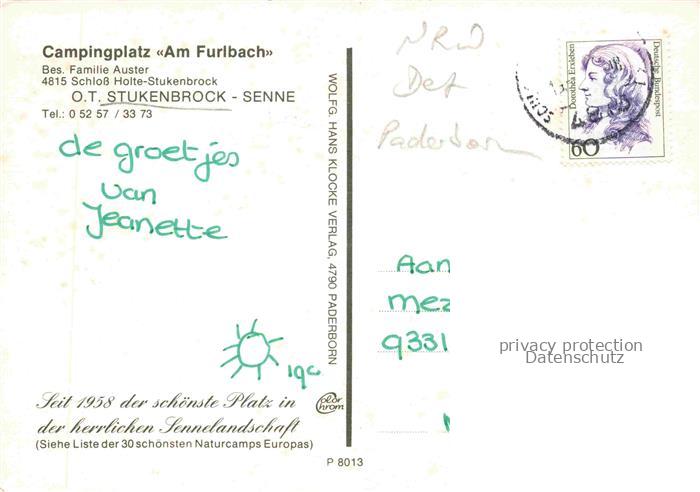 Campingplatz «Am Furlbach»
Bes. Familie Auster
4815 Schloß Holte-Stukenbrock
O.T. STUKENBROCK - SENNE
Tel.: 0 52 57 / 33 73
de groetjes
van
Jeanette
Seit 1958 der schönste Platz in
der herrlichen Sennelandschaft
(Siehe Liste der 30 schönsten Naturcamps Europas)
WOLFG. HANS KLOCKE VERLAG, 4790 PADERBORN
color
chrom
P 8013
NRW
Det
Paderborn
Dorothea Erxleben
Deutsche Bundespost
60
Aan
mez
9331
privacy protection
Datenschutz